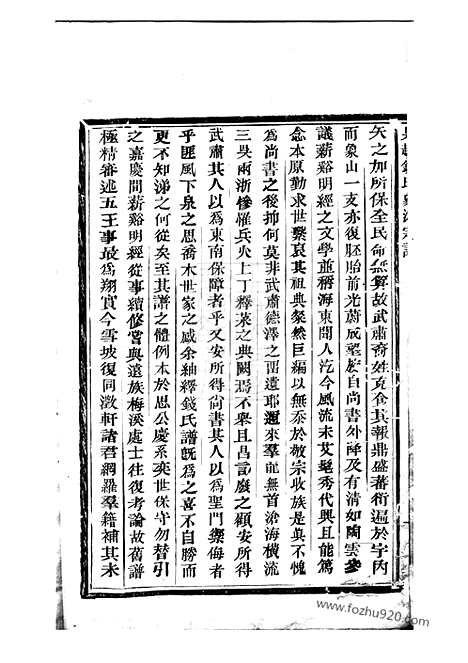 矢之加所保全民命無算故武肅裔姓克食其報鼎盛蕃衍遍於宇內
而象山一支亦復胚胎前光蔚成望族自尚書外禪及有清如陶雲參
議薪谿明經之文學並稱海東聞人迄今風流未艾髦秀代興且能篤
念本原勤求世繫哀其祖典粲然巨編以無忝於敬宗收族是眞不愧
為尚書之後抑何莫非武肅德澤之畱遺耶邇來羣龍無首滄海橫流
三吳兩浙慘罹兵火上丁釋菜之典闕焉不舉且昌言廢之顧安所得
武肅其人以為東南保障者乎又安所得尚書其人以為聖門禦侮者
乎匪風下泉之思喬木世家之感余紬繹錢氏譜旣為之喜不自勝而
更不知涕之何從矣至其譜之體例本於思公慶系奕世保守勿替引
之嘉慶間薪谿明經從事續修嘗與遠族梅溪處士往復考論故舊譜
極精審述五王事最為翔實今雪坡復同澂軒諸君網羅羣籍補其未
www.fozhu920.com